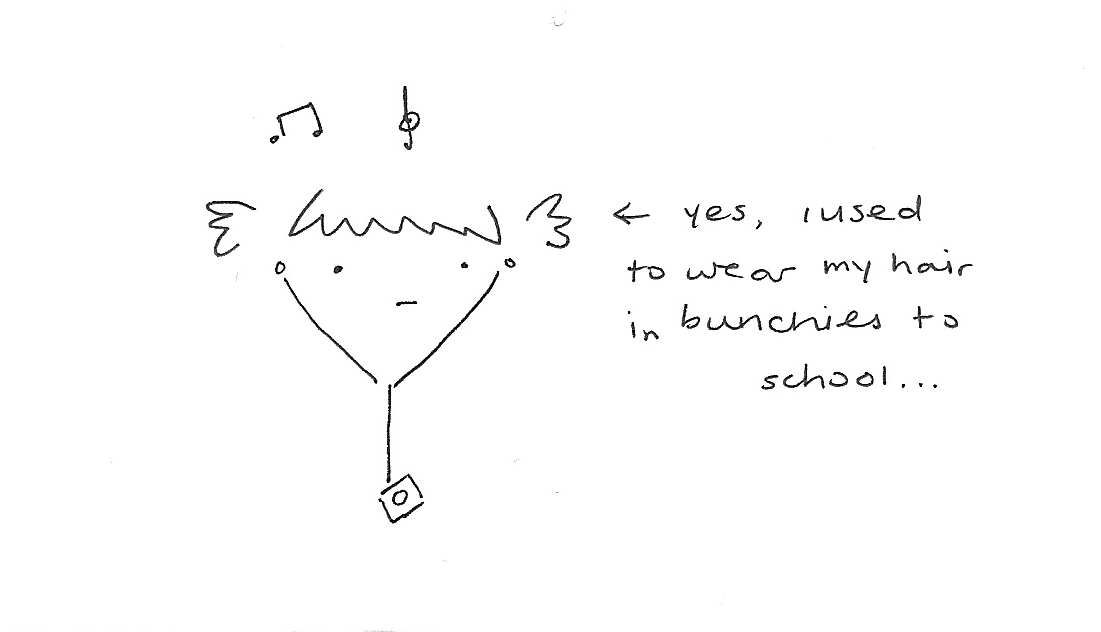 ← yes, i used
to wear my hair
in bunchies to
school...